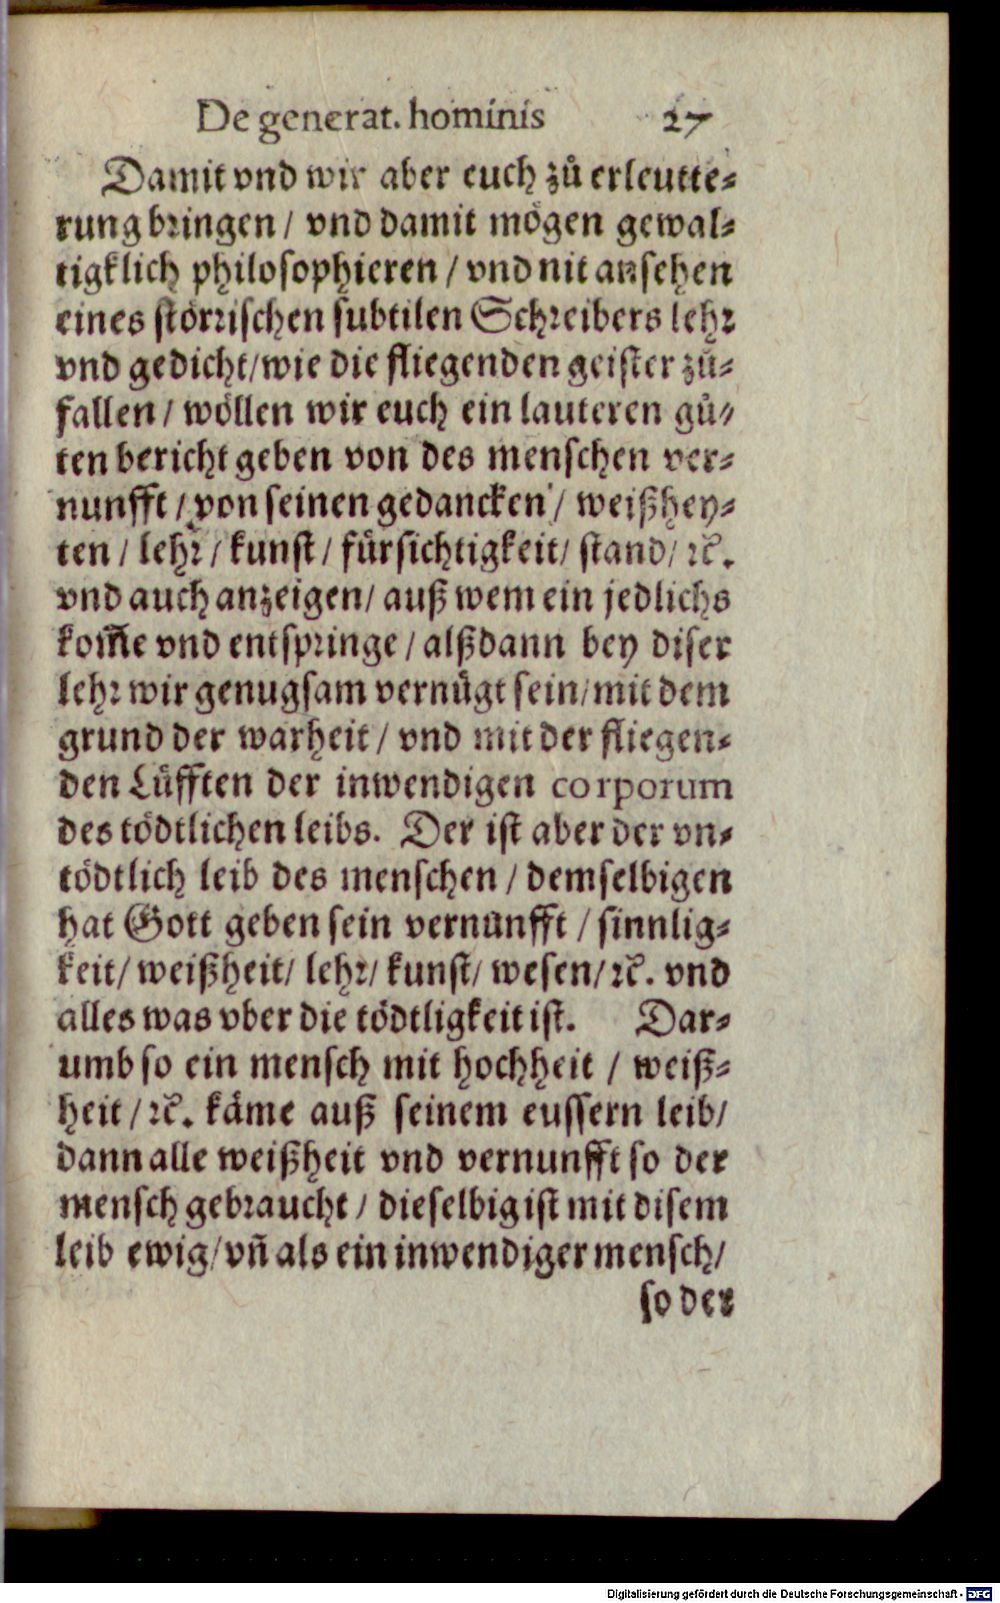 De generat. hominis 27
Damit vnd wir aber euch zů erleutte⸗
rung bringen / vnd damit mögen gewal⸗
tigklich philosophieren / vnd nit ansehen
eines störrischen subtilen Schreibers lehr
vnd gedicht/wie die fliegenden geister zů⸗
fallen / wöllen wir euch ein lauteren gů⸗
ten bericht geben von des menschen ver⸗
nunfft / von seinen gedancken / weißhey⸗
ten / lehr / kunst / fürsichtigkeit/ stand/ ꝛc̃.
vnd auch anzeigen/ auß wem ein jedlichs
kom̃e vnd entspringe / alßdann bey diser
lehr wir genugsam vernügt sein/mit dem
grund der warheit / vnd mit der fliegen⸗
den Lüfften der inwendigen corporum
des tödtlichen leibs. Der ist aber der vn⸗
tödtlich leib des menschen / demselbigen
hat Gott geben sein vernunfft / sinnlig⸗
keit/ weißheit/ lehr/ kunst/ wesen/ꝛc̃. vnd
alles was vber die tödtligkeit ist. Dar⸗
umb so ein mensch mit hochheit / weiß⸗
heit / ꝛc̃. käme auß seinem eussern leib/
dann alle weißheit vnd vernunfft so der
mensch gebraucht / dieselbig ist mit disem
leib ewig/vñ als ein inwendiger mensch/
so der
Digitalisierung gefördert durch die Deutsche Forschungsgemeinschaft - DFG